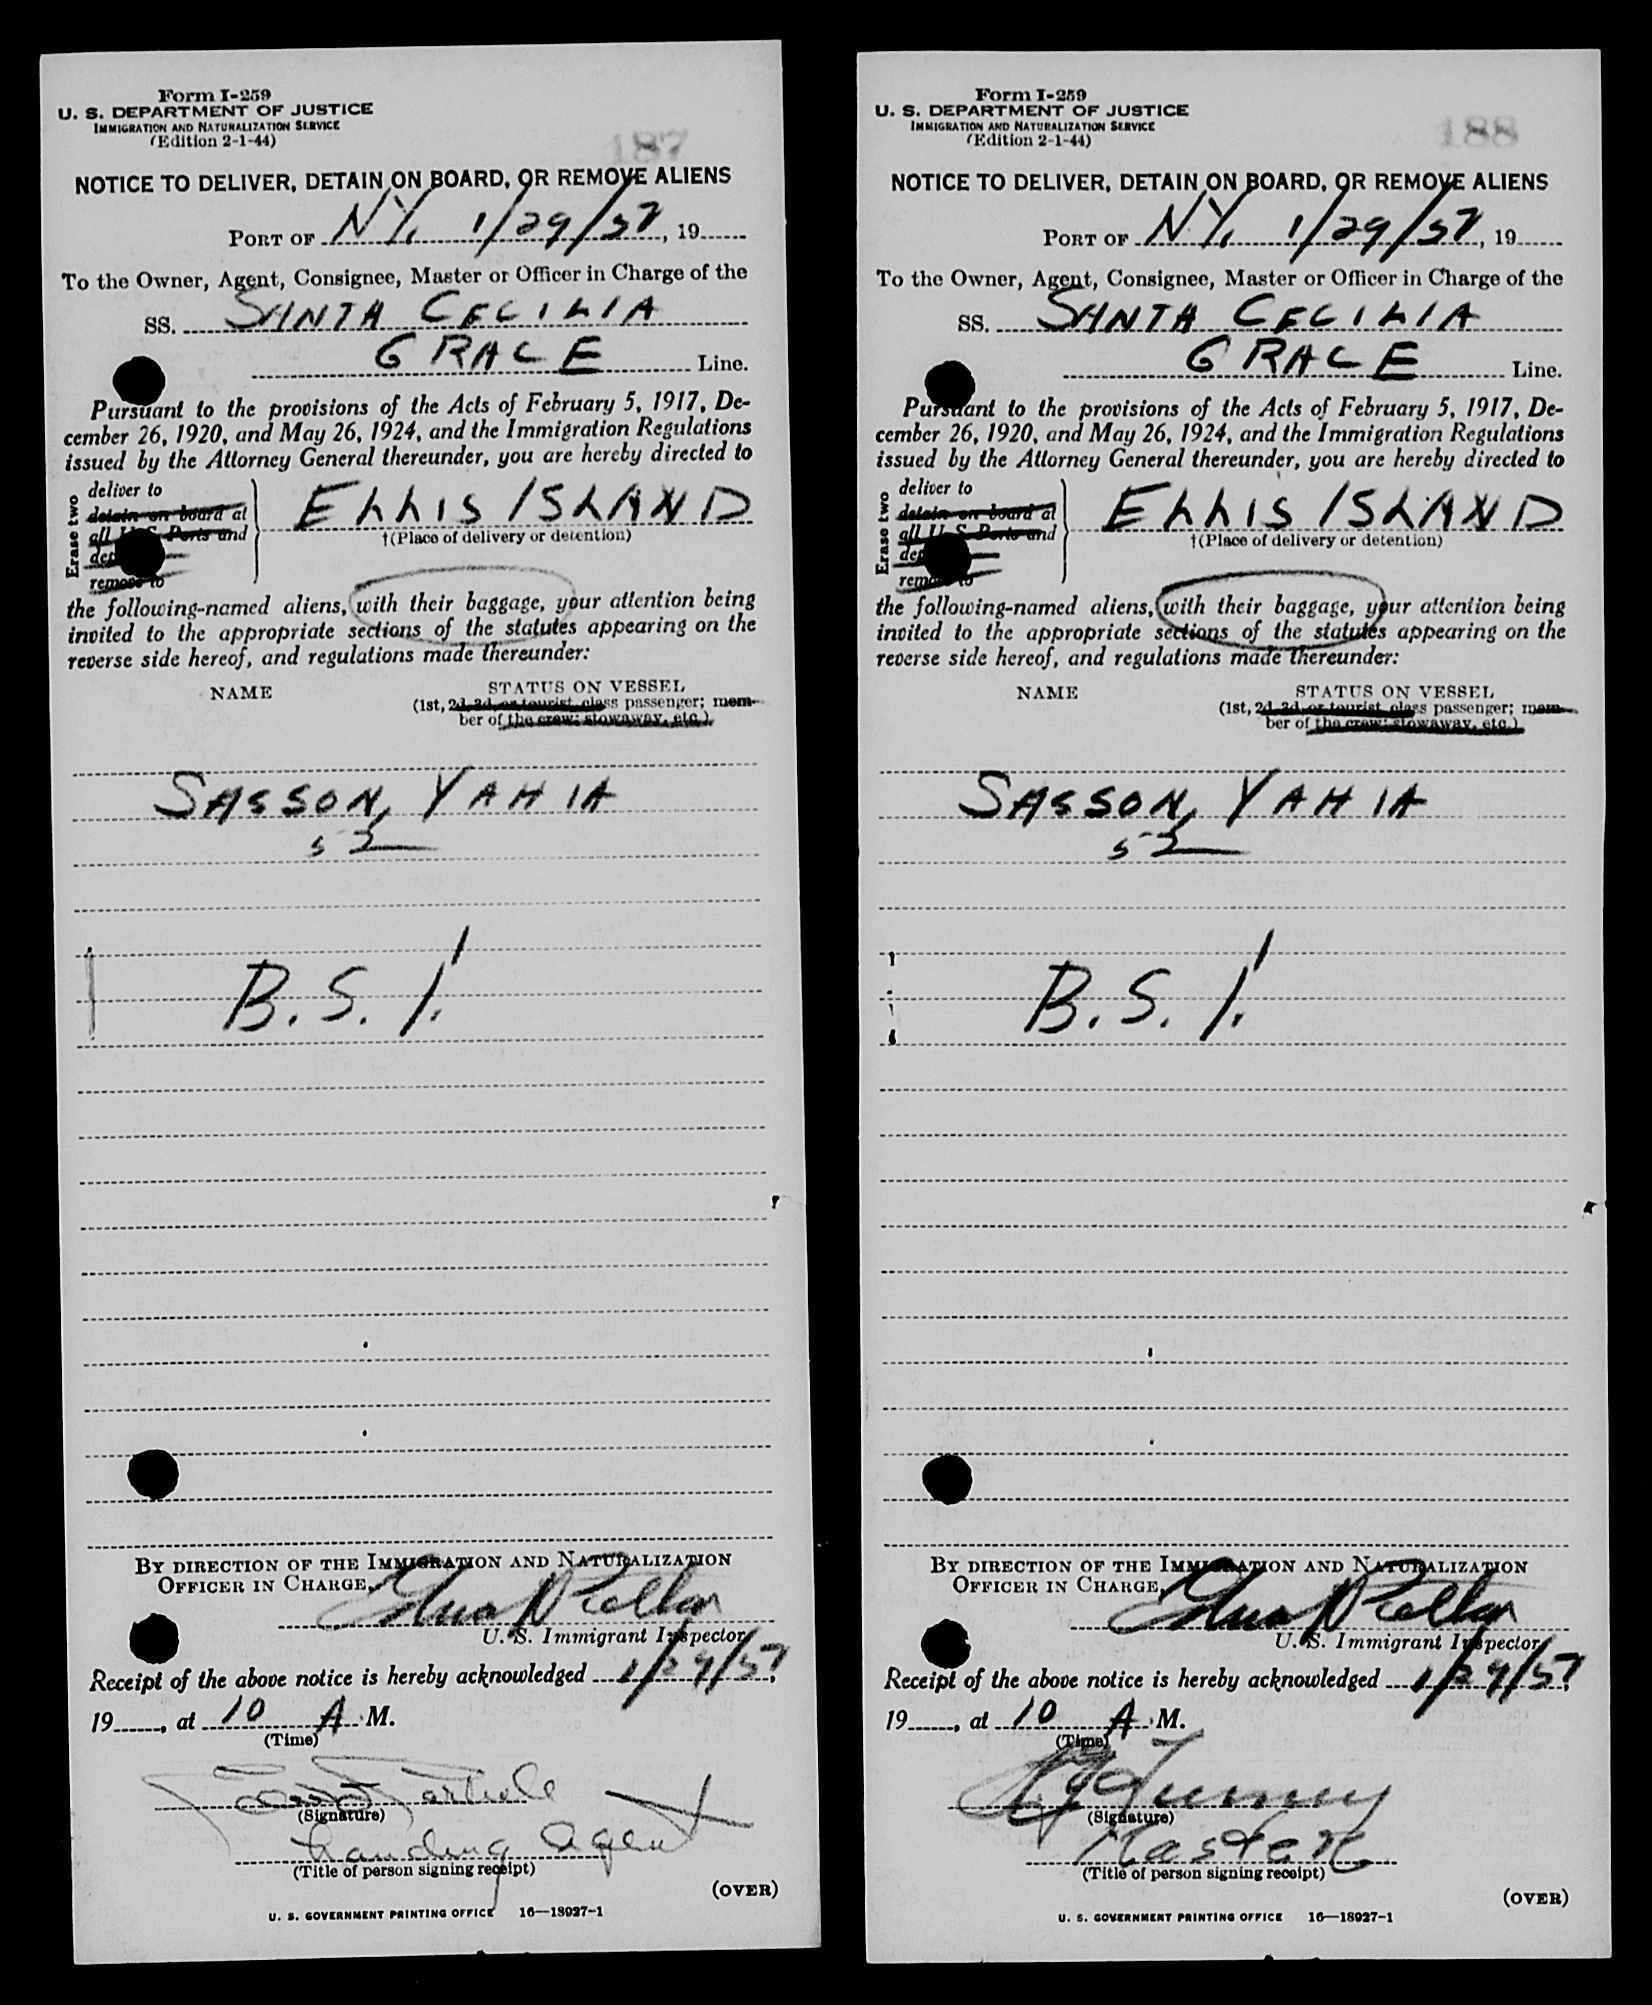 Form I-259
U. S. DEPARTMENT OF JUSTICE
IMMIGRATION AND NATURALIZATION SERVICE
(Edition 2-1-44)
187
NOTICE TO DELIVER, DETAIN ON BOARD, OR REMOVE ALIENS
PORT OF N.Y. 1/29/52, 19
To the Owner, Agent, Consignee, Master or Officer in Charge of the
SS. SANTA CECILIA
GRACE Line.
Pursuant to the provisions of the Acts of February 5, 1917, De-
cember 26, 1920, and May 26, 1924, and the Immigration Regulations
issued by the Attorney General thereunder, you are hereby directed to
Erase two
deliver to
detain on board at
all U S Ports and
remove to
ELLIS ISLAND
†(Place of delivery or detention)
the following-named aliens, with their baggage, your attention being
invited to the appropriate sections of the statutes appearing on the
reverse side hereof, and regulations made thereunder:
NAME
STATUS ON VESSEL
(1st, 2d, 3d, or tourist class passenger; mem-
ber of the crew; stowaway, etc.)
SASSON, YAHIA
52
B. S. I.
BY DIRECTION OF THE IMMIGRATION AND NATURALIZATION
OFFICER IN CHARGE,
U. S. Immigrant Inspector
Receipt of the above notice is hereby acknowledged 1/29/57,
19, at 10 A. M.
(Time)
(Signature)
Landing Agent
(Title of person signing receipt)
(OVER)
U. S. GOVERNMENT PRINTING OFFICE 16—18927-1
Form I-259
U. S. DEPARTMENT OF JUSTICE
IMMIGRATION AND NATURALIZATION SERVICE
(Edition 2-1-44)
188
NOTICE TO DELIVER, DETAIN ON BOARD, OR REMOVE ALIENS
PORT OF N.Y. 1/29/52, 19
To the Owner, Agent, Consignee, Master or Officer in Charge of the
SS. SANTA CECILIA
GRACE Line.
Pursuant to the provisions of the Acts of February 5, 1917, De-
cember 26, 1920, and May 26, 1924, and the Immigration Regulations
issued by the Attorney General thereunder, you are hereby directed to
Erase two
deliver to
detain on board at
all U S Ports and
remove to
ELLIS ISLAND
†(Place of delivery or detention)
the following-named aliens, with their baggage, your attention being
invited to the appropriate sections of the statutes appearing on the
reverse side hereof, and regulations made thereunder:
NAME
STATUS ON VESSEL
(1st, 2d, 3d, or tourist class passenger; mem-
ber of the crew; stowaway, etc.)
SASSON, YAHIA
52
B. S. I.
BY DIRECTION OF THE IMMIGRATION AND NATURALIZATION
OFFICER IN CHARGE,
U. S. Immigrant Inspector
Receipt of the above notice is hereby acknowledged 1/29/57,
19, at 10 A. M.
(Time)
(Signature)
Master
(Title of person signing receipt)
(OVER)
U. S. GOVERNMENT PRINTING OFFICE 16—18927-1